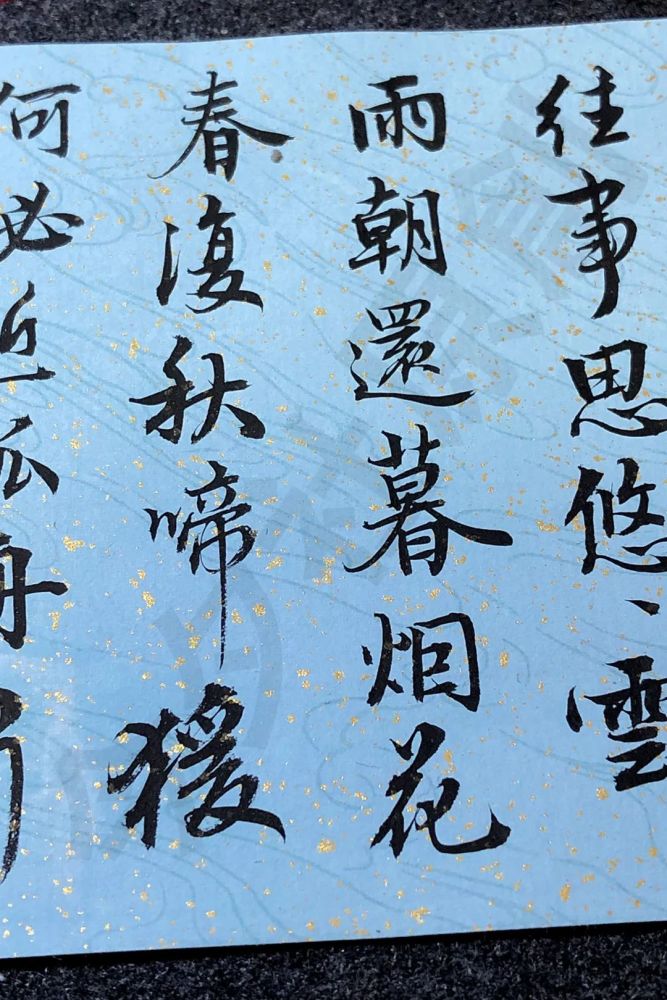 往事思悠、雲
雨朝還暮烟花
春復秋啼猨
何必近孤舟